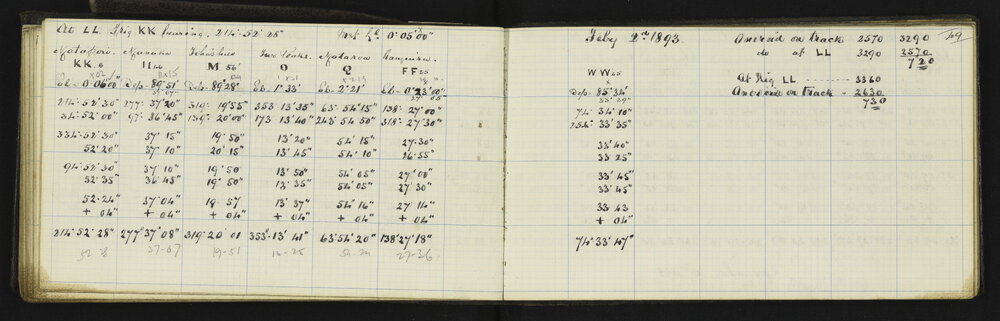 At LL. Trig KK bearing. 214° 52' 28" Inst. 0° 05' 00"
KK.6 II M 56' O Q FF25
el- 0° 06' 00" Dep- 89° 51' Dep- 89° 28' El- 1° 33' El- 2° 21' El- 0° 23' 00"
214° 52' 30" 277° 37' 20" 319° 19' 55" 353° 13' 35" 63° 54' 15" 138° 27' 00"
34° 52' 00" 97° 36' 45" 139° 20' 00" 173° 13' 40" 243° 54' 50" 318° 27' 30"
334° 52' 30" 37' 15" 19' 50" 13' 20" 54' 15" 27' 30"
52' 20" 37' 10" 20' 15" 13' 45" 54' 10" 26' 55"
94° 52' 30" 37' 10" 19' 50 13' 50" 54' 05" 27' 00"
52' 35" 36' 45" 19' 50" 13' 35" 54' 05" 27' 30"
52' 24" 37' 04" 19' 57 13' 37" 54' 16" 27' 14"
+ 04" + 04" + 04" + 04" + 04" + 04"
214° 52' 28" 277° 37' 08" 319° 20' 01 353° 13' 41" 63° 54' 20" 138° 27' 18"
37-07 19-51 27-26
Feby 2nd 1893. Aneroid on track 2570 3290 49
do at LL 3290 2570
720
At Trig LL 3360
Aneroid on track - 2630
730
WW25
Dep- 85° 34'
74° 34' 10"
254° 33' 35"
33' 40"
33' 25"
33' 45"
33' 45"
33' 43
+ 04"
74° 33' 47"